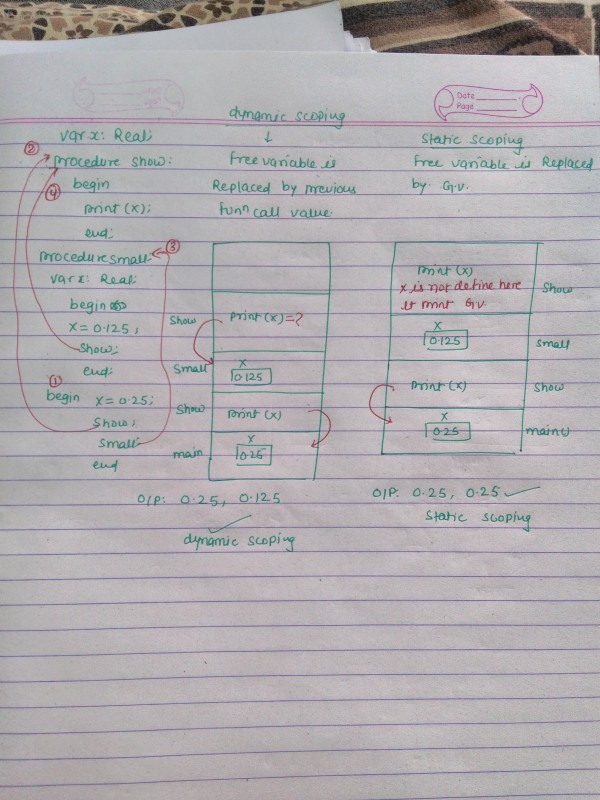 Date
Page
② var x: Real;
procedure show:
④ begin
print (x);
end;
procedure small; ③
var x: Real;
begin
x = 0.125;
show;
end;
①
begin x = 0.25;
Show;
small;
end
dynamic scoping
↓
Free variable is
Replaced by previous
funⁿ call value
Show print (x) = ?
x
Small 0.125
Show print (x)
x
main 0.25
O/P: 0.25, 0.125
dynamic scoping
Static scoping
Free variable is Replaced
by G.V.
print (x)
x is not define here
it print G.V.
Show
x
0.125 small
print (x) show
x
0.25 main()
O/P: 0.25, 0.25
Static scoping